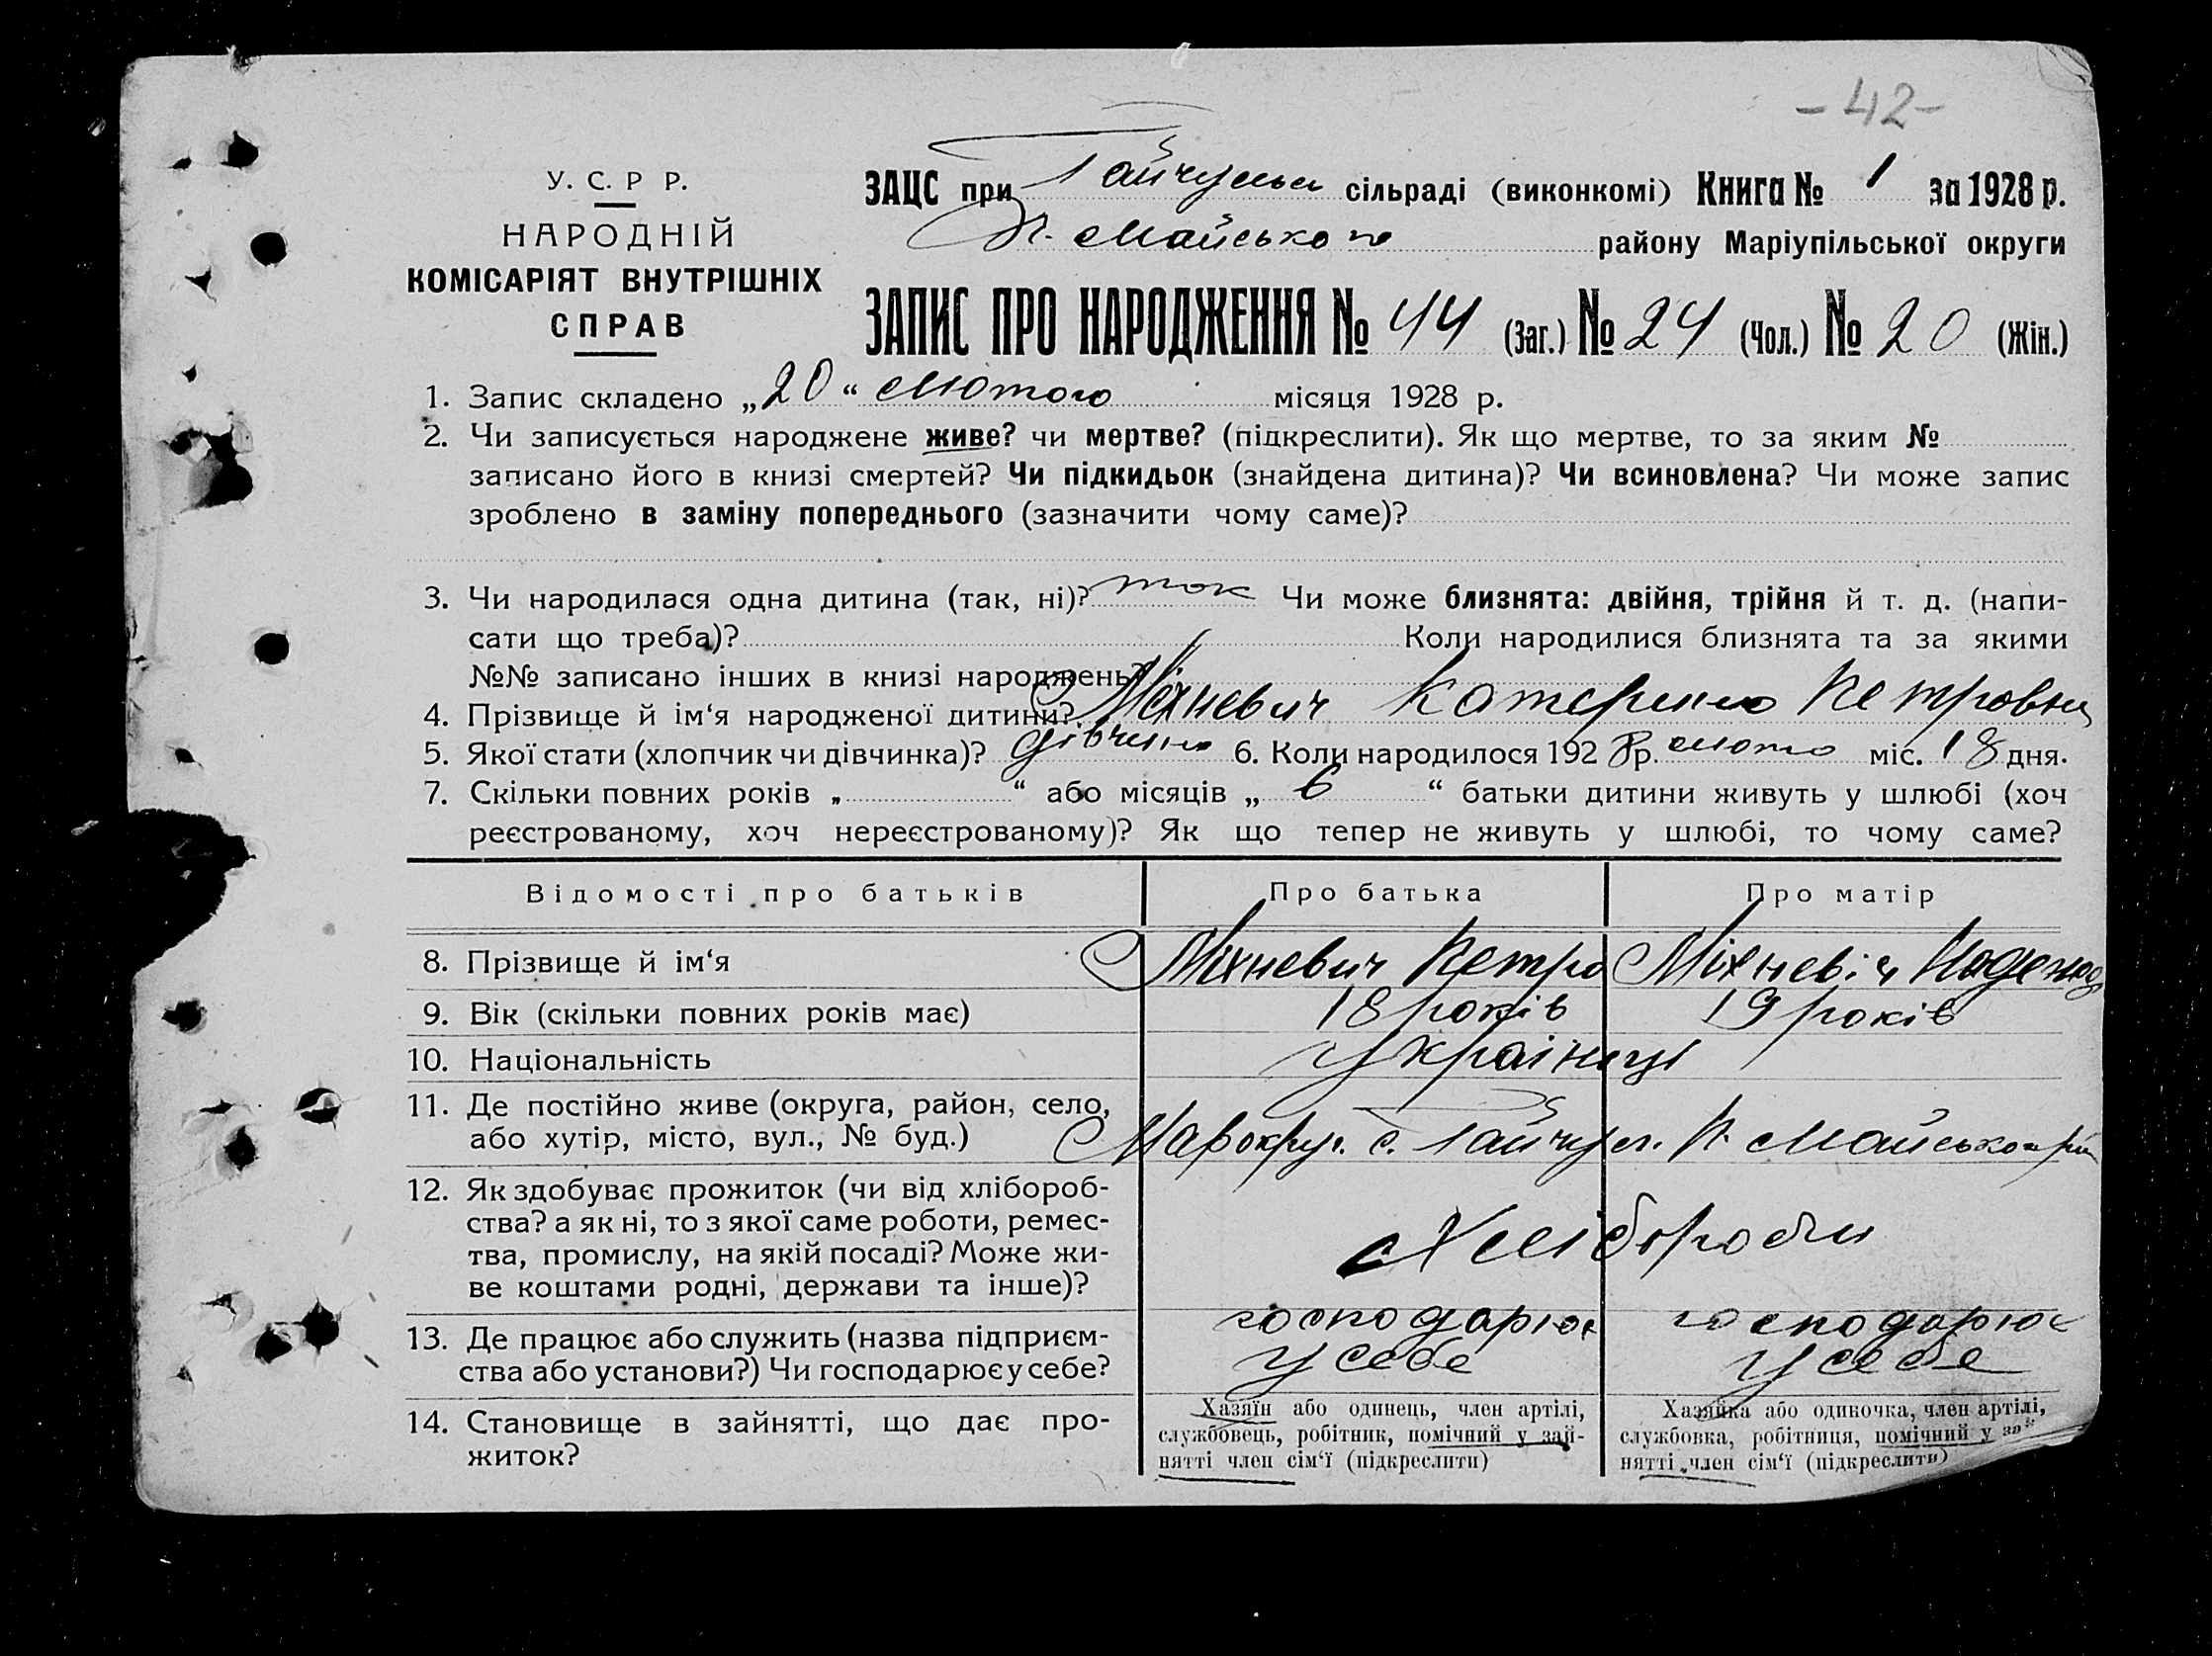 - 42 -
У. С. Р Р.
НАРОДНІЙ
КОМІСАРІЯТ ВНУТРІШНІХ
СПРАВ
ЗАЦС при Гайчульск сільраді (виконкомі) Книга № 1 за 1928 р.
П. Майського району Маріупільської округи
ЗАПИС ПРО НАРОДЖЕННЯ № 44 (Заг.) № 24 (Чол.) № 20 (Жін.)
1. Запис складено „20“ Лютого місяця 1928 р.
2. Чи записується народжене живе? чи мертве? (підкреслити). Як що мертве, то за яким №
записано його в книзі смертей? Чи підкидьок (знайдена дитина)? Чи всиновлена? Чи може запис
зроблено в заміну попереднього (зазначити чому саме)?
3. Чи народилася одна дитина (так, ні)? так Чи може близнята: двійня, трійня й т. д. (напи-
сати що треба)? Коли народилися близнята та за якими
№№ записано інших в книзі народжень?
4. Прізвище й ім‘я народженої дитини? Міхневич Катерина Петровна
5. Якої стати (хлопчик чи дівчинка)? дівчина 6. Коли народилося 1928 р. люто міс. 18 дня.
7. Скільки повних років „ “ або місяців „ 6 “ батьки дитини живуть у шлюбі (хоч
реєстрованому, хоч нереєстрованому)? Як що тепер не живуть у шлюбі, то чому саме?
Відомості про батьків Про батька Про матір
8. Прізвище й ім‘я Міхневич Петро Міхневіч Надежда
9. Вік (скільки повних років має) 18 років 19 років
10. Національність Українці
11. Де постійно живе (округа, район, село,
або хутір, місто, вул., № буд.) Марокруг. с. Гайчул. П. Майського рай
12. Як здобуває прожиток (чи від хлібороб-
ства? а як ні, то з якої саме роботи, ремес-
тва, промислу, на якій посаді? Може жи-
ве коштами родні, держави та інше)?
Хлібороби
13. Де працює або служить (назва підприєм-
ства або установи?) Чи господарює у себе?
господарює у себе
господарює у себе
14. Становище в зайнятті, що дає про-
житок?
Хазяїн або одинець, член артілі,
службовець, робітник, помічний у зай-
нятті член сім‘ї (підкреслити)
Хазяйка або одиночка, член артілі,
службовка, робітниця, помічний у за
нятті член сім‘ї (підкреслити)